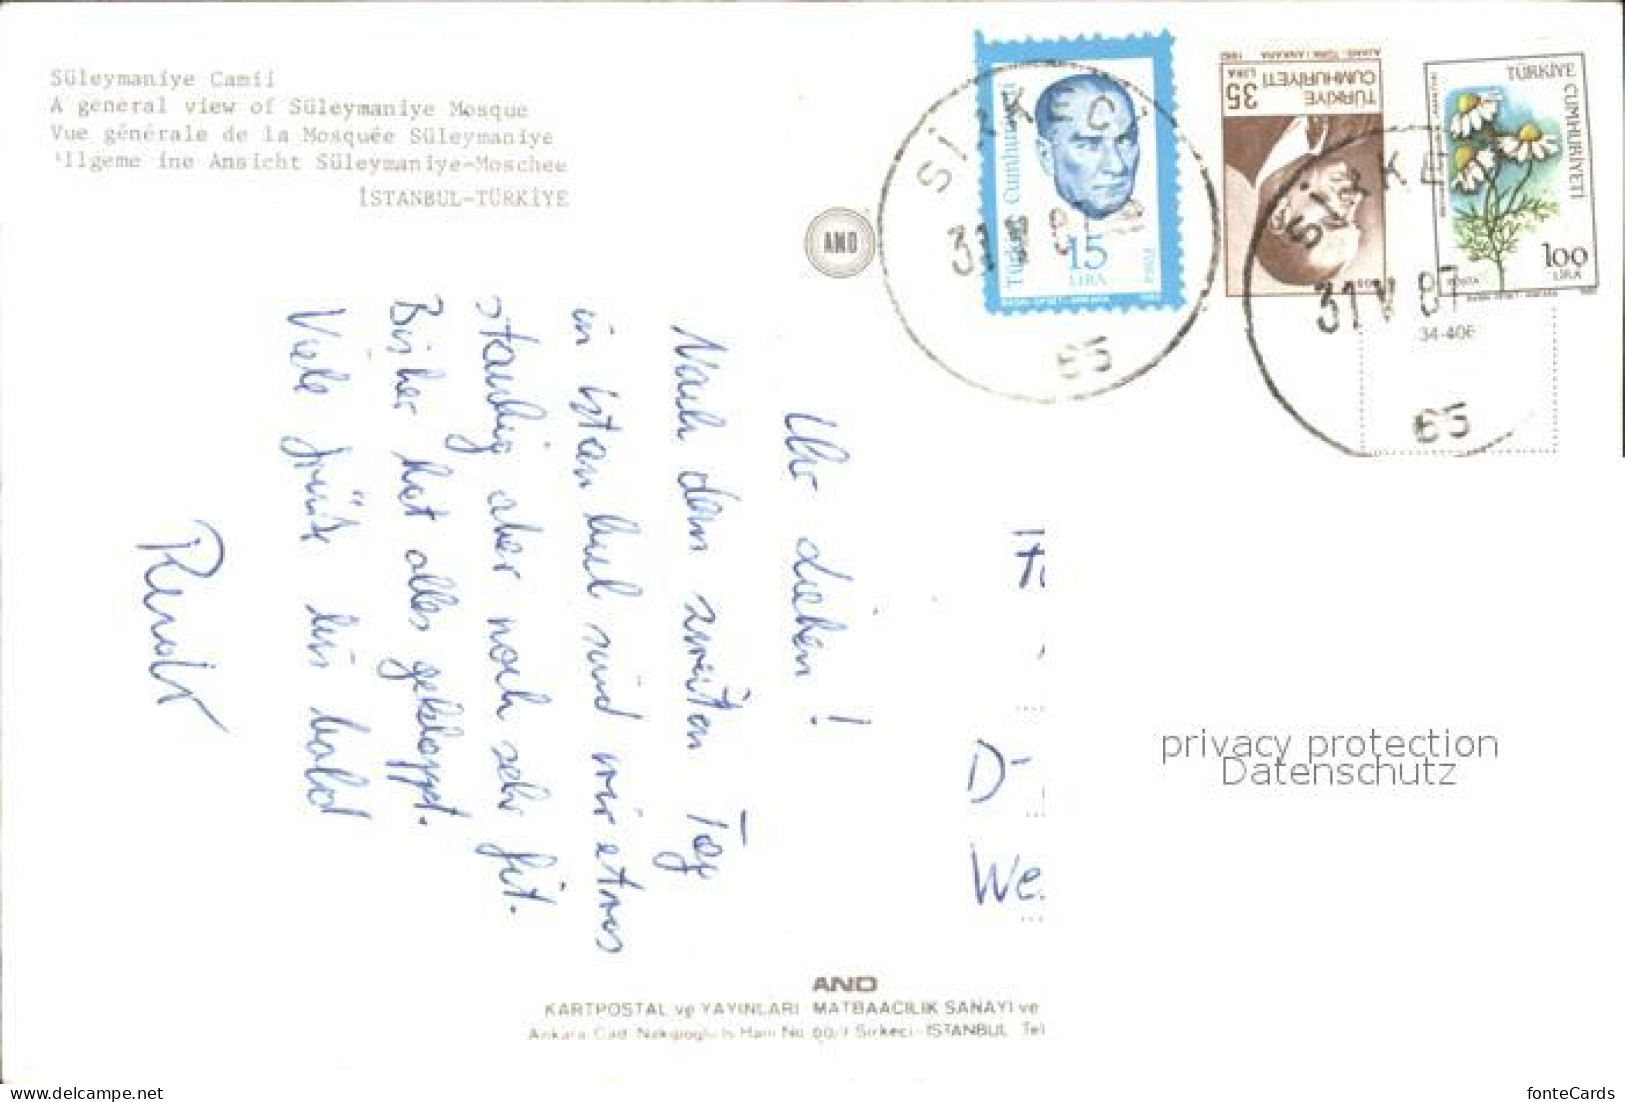 Süleymaniye Camii
A general view of Süleymaniye Mosque
Vue générale de la Mosquée Süleymaniye
llgeme ine Ansicht Süleymaniye-Moschee
İSTANBUL-TÜRKİYE
AND
Türkiye Cumhuriyeti
15
LİRA
1983
TÜRKİYE
CUMHURİYETİ
35
LİRA
TÜRKİYE CUMHURİYETİ
100
LİRA
POSTA
SİRKECİ
31 87
65
SİRKE
31 V 87
65
34-406
Ihr Lieben!
Nach dem zweiten Tag
in Istanbul sind wir etwas
staubig aber noch sehr fit.
Bisher hat alles geklappt.
Viele Grüße bis bald
D
We
privacy protection
Datenschutz
AND
KARTPOSTAL ve YAYINLARI MATBAACILIK SANAYİ ve
Ankara Cad. Nakipoğlu İş Hanı No. 60/1 Sirkeci-İSTANBUL Tel
delcampe.net
fonteCards